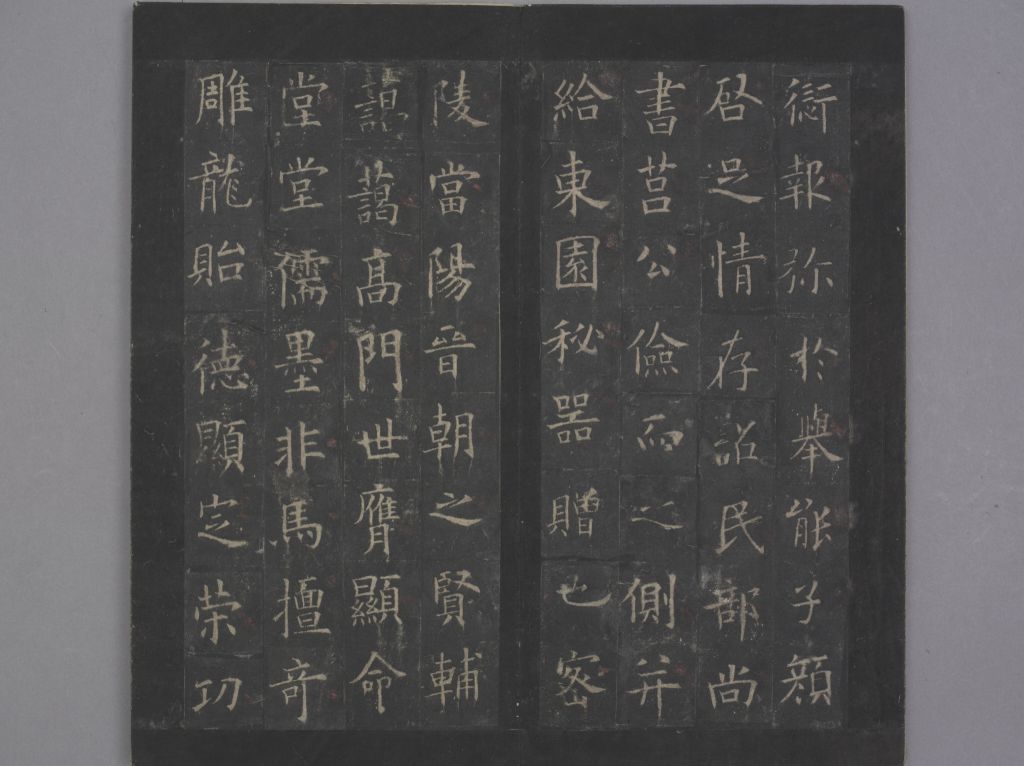 報弥於舉能子顏
啓情存詔民部尚
書莒公儉而之側并
給東園秘器贈也密
陵當陽晉朝之賢輔
藹藹高門世膺顯命
堂堂儒墨非馬擅奇
雕龍貽德顯定榮功